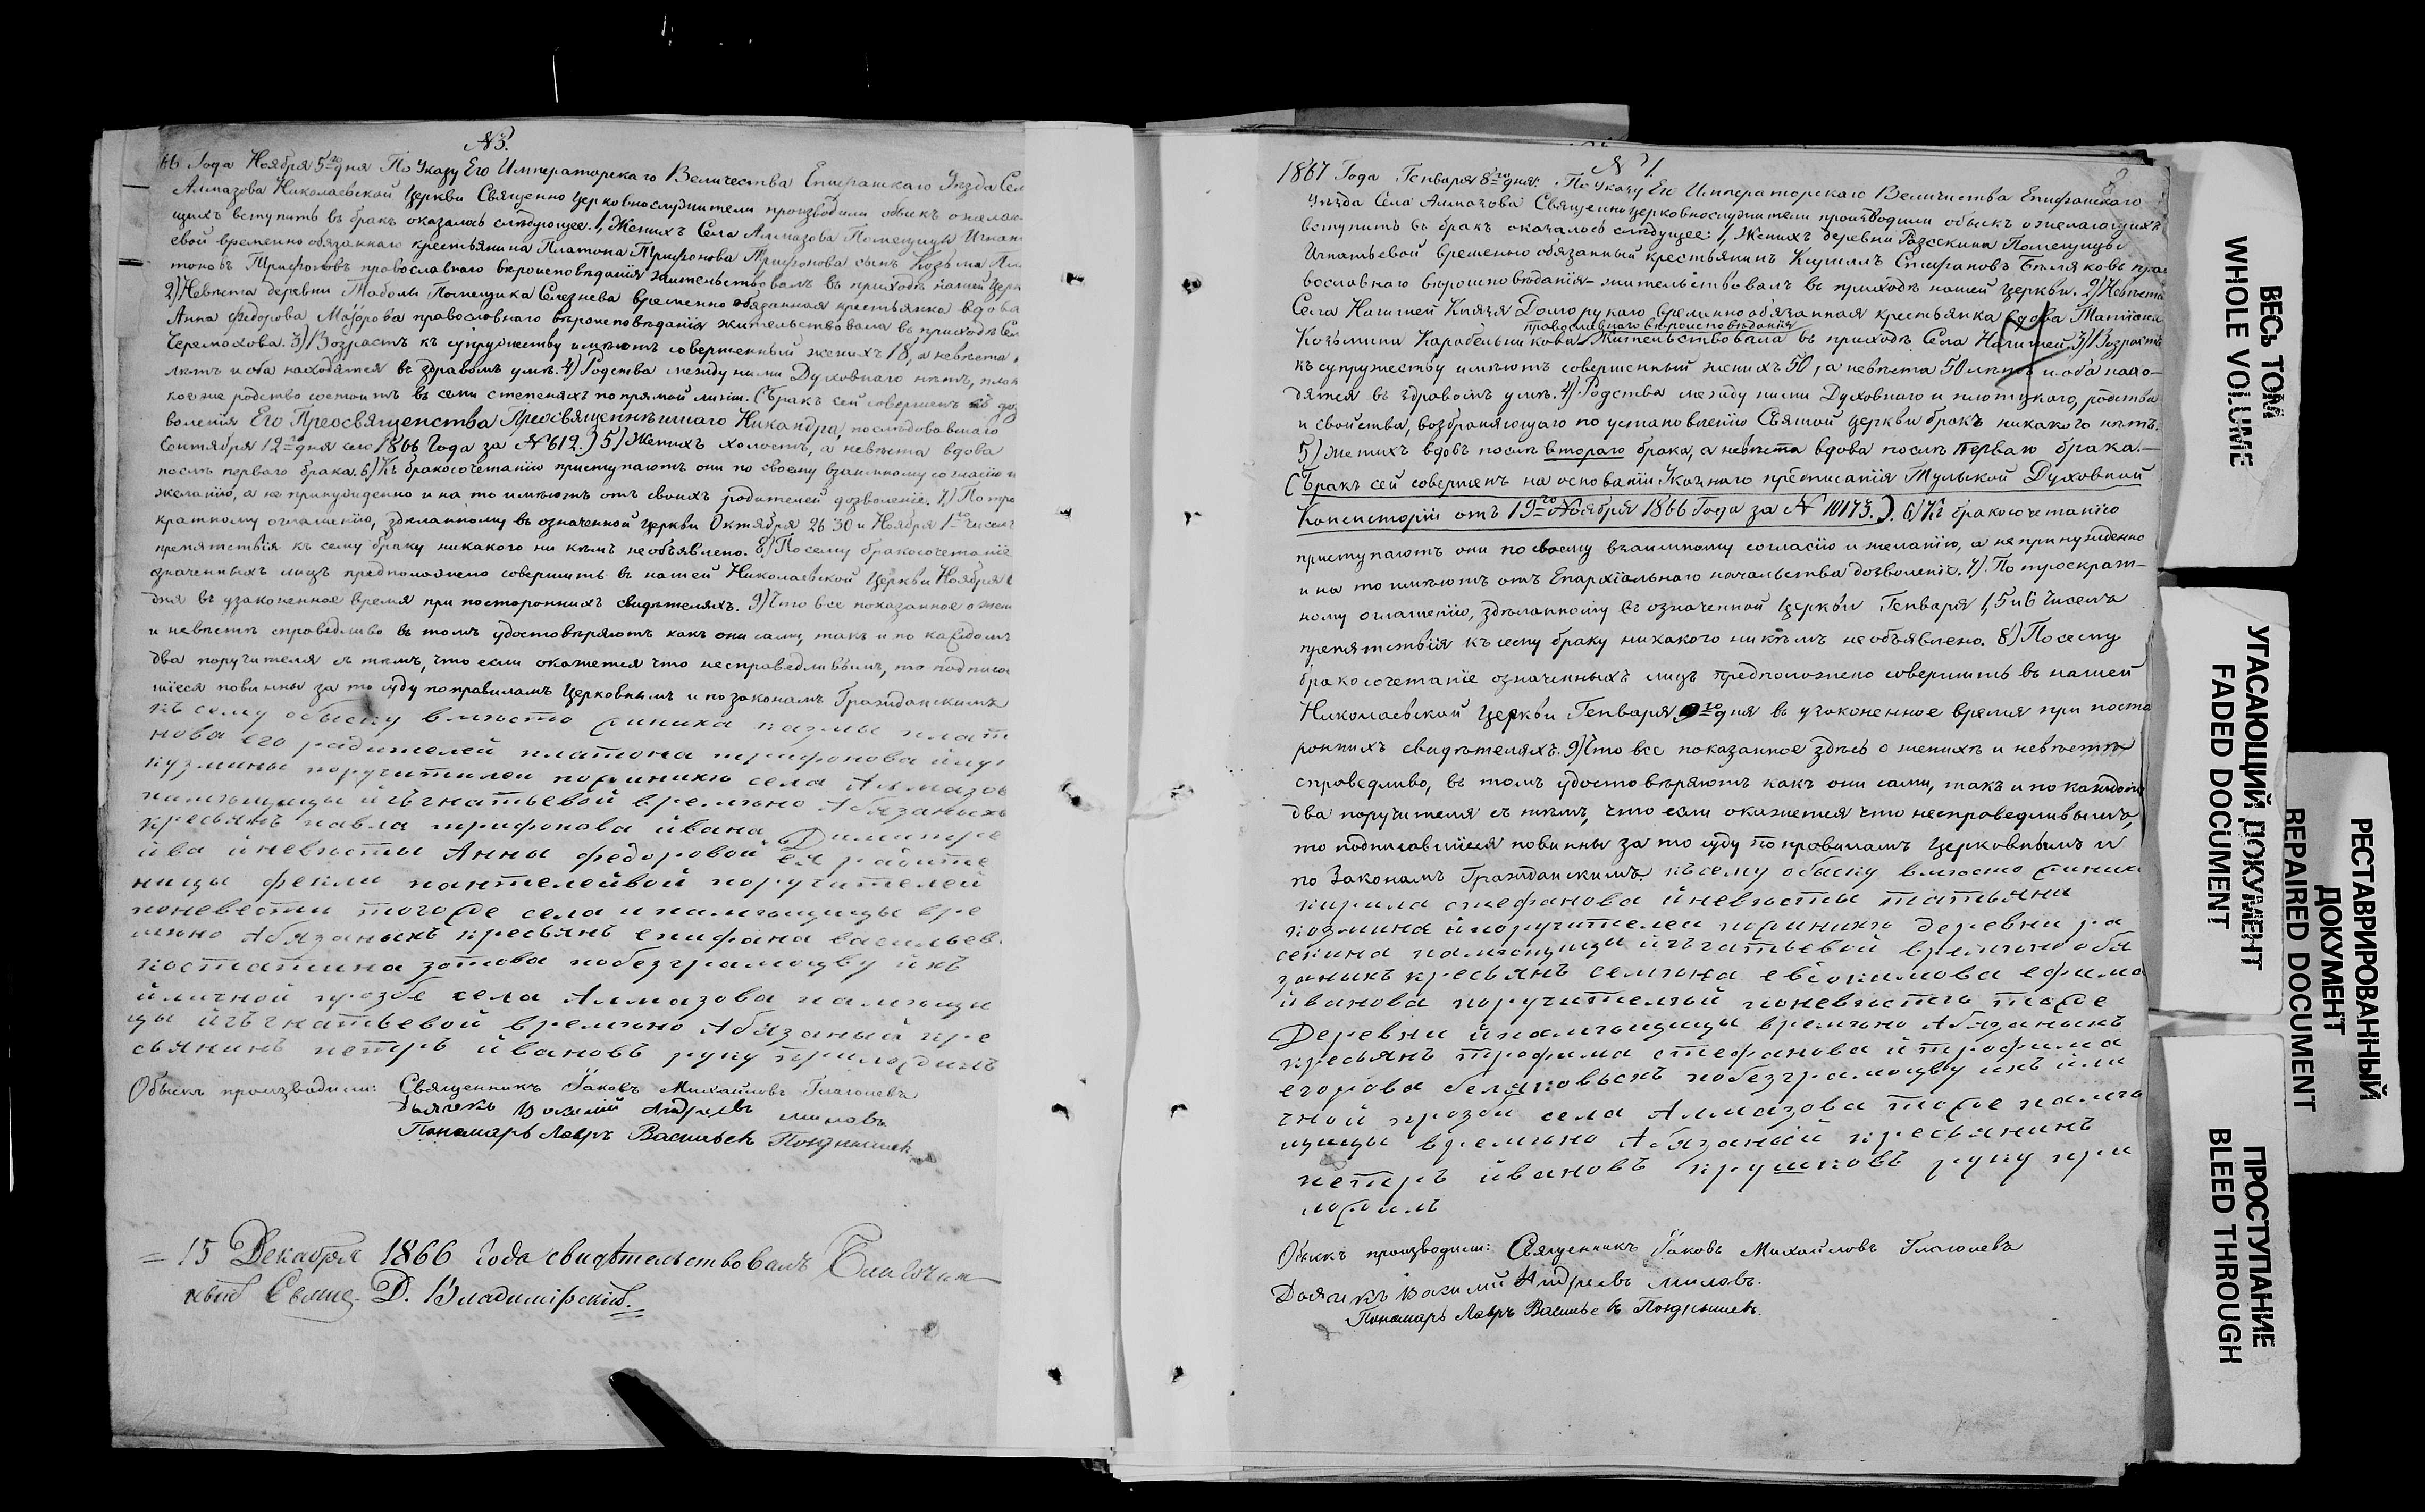 № 3.
66 Года Ноября 5го дня По Указу Его Императорскаго Величества Епифанскаго Уезда Сел
Алмазова Николаевской Церкви Священно церковнослужители производили обыскъ о желаю
щихъ вступить въ бракъ оказалось слѣдующее. 1, Женихъ Села Алмазова Помещицы Игнать
евой временно обязаннаго крестьянина Платона Трифонова Трифонова сынъ Козьма Пла
тоновъ Трифоновъ православнаго вѣроисповѣданія жительствовалъ въ приходѣ нашей Церк
2) Невѣста деревни Таболы Помещика Селезнева временно обязанная крестьянка вдова
Анна Федорова православнаго вѣроисповѣданія жительствовала въ приходѣ Сел
3) Возрастъ къ супружеству имѣютъ совершенный женихъ 18, а невѣста
лѣтъ и оба находятся въ здравомъ умѣ. 4) Родства между ними Духовнаго нѣтъ, плот
ское родство состоитъ въ семи степеняхъ по прямой линіи. (Бракъ сей совершенъ съ доз
воленія Его Преосвященства Преосвященнѣйшаго Никандра, последовавшаго
Сентября 12го дня сего 1866 Года за № 612.) 5) Женихъ холостъ, а невѣста вдова
послѣ перваго брака. 6) Къ бракосочетанію приступаютъ они по своему взаимному согласію и
желанію, а не принужденно и на то имѣютъ отъ своихъ родителей дозволеніе. 7) По тро
кратному оглашенію, здѣланному въ означенной церкви Октября 26 30 и Ноября 1го чиселъ
препятствія къ сему браку никакого ни кѣмъ не объявлено. 8) По сему бракосочетаніе
означенныхъ лицъ предположено совершить въ нашей Николаевской Церкви Ноября
дня въ узаконенное время при постороннихъ свидѣтеляхъ. 9) Что все показанное о жен
и невѣстѣ справедливо въ томъ удостовѣряютъ какъ они сами, такъ и по каждомъ
два поручителя съ тѣмъ, что если окажется что несправедливымъ, то подписа
шіеся повинны за то суду по правиламъ Церковнымъ и по законамъ Гражданскимъ
къ сему обыску вместо жиниха казмы плат
нова его радителей платона трифонова
кузмины поручителеи пожиниху села Алмазов
памѣщицы игънатьевой времѣно Абязаныхъ
кресьянъ павла трифонова ивана Димитре
ива иневѣсты Анны федоровой ея радите
ницы феклы пантелейвой поручителей
поневести тогоже села и памѣщицы вре
мѣно Абязаныхъ кресьянъ епифана васильев
костатина зотова побезграмоцву ихъ
иличной прозбе села Алмазова памѣщи
цы игънатьевой времѣно Абязаный кре
сьянинъ петръ ивановъ руку приложилъ
Обыскъ производили: Священникъ Іаковъ Михайловъ Глаголевъ
Дьячекъ Василий Андреевъ Миловъ
Пономарь Лавръ Васильевъ Позднышевъ
= 15 Декабря 1866 года свидѣтельствовалъ Благочин
ный Свящ. Д. Владимірскій.
№ 1.
1867 Года Генваря 8го дня. По указу Его Императорскаго Величества Епифанскаго
Уѣзда Села Алмазова Священно церковнослужители производили обыскъ о желающихъ
вступить въ бракъ оказалось слѣдущее: 1, Женихъ деревни Разсскина Помещицы
Игнатьевой временно обязанный крестьянинъ Кирилъ Стефановъ Беляковъ пра
вославнаго вѣроисповѣданія жительствовалъ въ приходѣ нашей Церкви. 2) Невѣста
Села Князя Долгорукаго временно обязанная крестьянка вдова Татіяна
православнаго вѣроисповѣданія
Козьмина Карабельникова жительствовала въ приходѣ Села 3) Возрастъ
къ супружеству имѣютъ совершенный женихъ 50, а невѣста 50 лѣтъ и оба нахо-
дятся въ здравомъ умѣ. 4) Родства между ними Духовнаго и плотскаго, родства
и свойства, возбраняющаго по установленію Святой Церкви бракъ никакого нѣтъ.
5) Женихъ вдовъ послѣ втораго брака, а невѣста вдова послѣ перваго брака.—
(Бракъ сей совершенъ на основаніи Указнаго предписанія Тульской Духовной
Консисторіи отъ 19го Ноября 1866 Года за № 10173.). 6) Къ бракосочетанію
приступаютъ они по своему взаимному согласію и желанію, а не принужденно
и на то имѣютъ отъ Епархіальнаго начальства дозволеніе. 7). По троекрат-
ному оглашенію, здѣланному въ означенной Церкви Генваря 1, 5 и 6 Чиселъ
препятствія къ сему браку никакого ни кѣмъ не объявлено. 8) По сему
бракосочетаніе означенныхъ лицъ предположено совершить въ нашей
Николаевской Церкви Генваря 9го дня въ узаконенное время при посто
роннихъ свидѣтеляхъ. 9) Что все показанное здѣсь о женихѣ и невѣстѣ
справедливо, въ томъ удостовѣряютъ какъ они сами, такъ и по каждомъ
два поручителя съ тѣмъ, что если окажется что несправедливымъ,
то подписавшіеся повинны за то суду по правиламъ Церковнымъ и
по Законамъ Гражданскимъ. къ сему обыску вместо жиних
кирила стефанова иневѣсты татьяны
козмина ипоручителеи пожиниху деревни ра
секина памѣщицы игънатьевой времѣно обя
заныхъ кресьянъ семѣна евсокимова ефима
иванова поручителѣй поневѣсте тоже
Деревни ипамѣщицы времѣно Абязаныхъ
кресьянъ трофима стефанова итрофима
егорова беляковыхъ побезграмоцву ихъ или
чной прозби села Алмазова тоже памѣ
щицы времѣно Абязаный кресьянинъ
петръ ивановъ крушковъ руку при
ложилъ
Обыскъ производили: Священникъ Іаковъ Михайловъ Глаголевъ
Дьячекъ Василий Андреевъ Миловъ.
Пономарь Лавръ Васильевъ Позднышевъ.
ВЕСЬ ТОМ
WHOLE VOLUME
УГАСАЮЩИЙ ДОКУМЕНТ
FADED DOCUMENT
РЕСТАВРИРОВАННЫЙ
ДОКУМЕНТ
REPAIRED DOCUMENT
ПРОСТУПАНИЕ
BLEED THROUGH